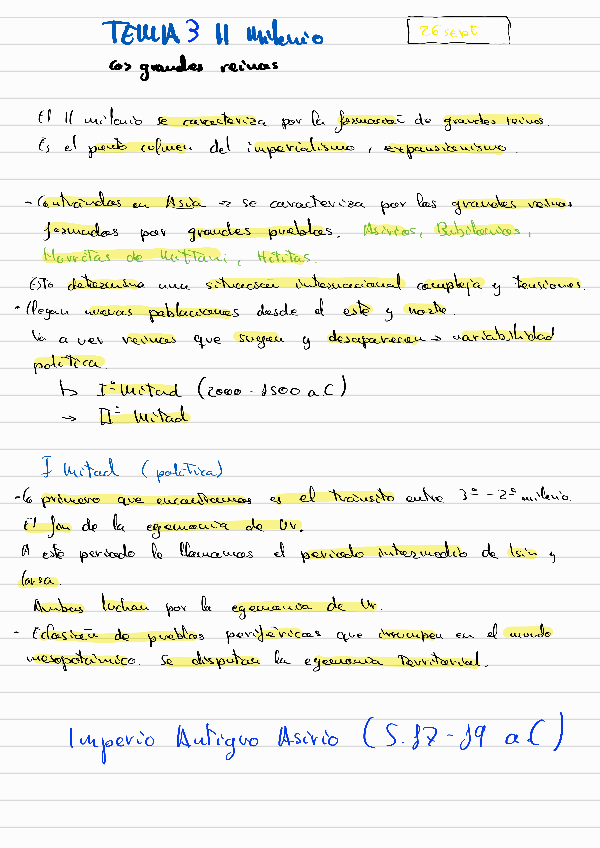 TEMA 3 II milenio
26 sept
los grandes reinos
El II milenio se caracteriza por la formación de grandes reinos.
Es el punto culmen del imperialismo, expansionismo.
- Centrándos en Asia → se caracteriza por los grandes reinos
formados por grandes pueblos. Asirios, Babilonios,
Hurritas de Mittani, Hititas.
Esto determina una situación internacional compleja y tensiones.
- Llegan nuevas poblaciones desde el este y norte.
Va a ver reinos que surgen y desaparecen → variabilidad
política.
↳ Iª Mitad (2000 - 1500 a C)
→ IIª Mitad
I Mitad (política)
- Lo primero que encontramos es el tránsito entre 3º - 2º milenio.
El fin de la egemonía de Ur.
A este periodo lo llamamos el periodo intermedio de Isin y
Larsa.
Ambas luchan por la egemonía de Ur.
- Eclosión de pueblos periféricos que irrumpen en el mundo
mesopotámico. Se disputan la egemonía territorial.
Imperio Antiguo Asirio (S. 17 - 19 a C)